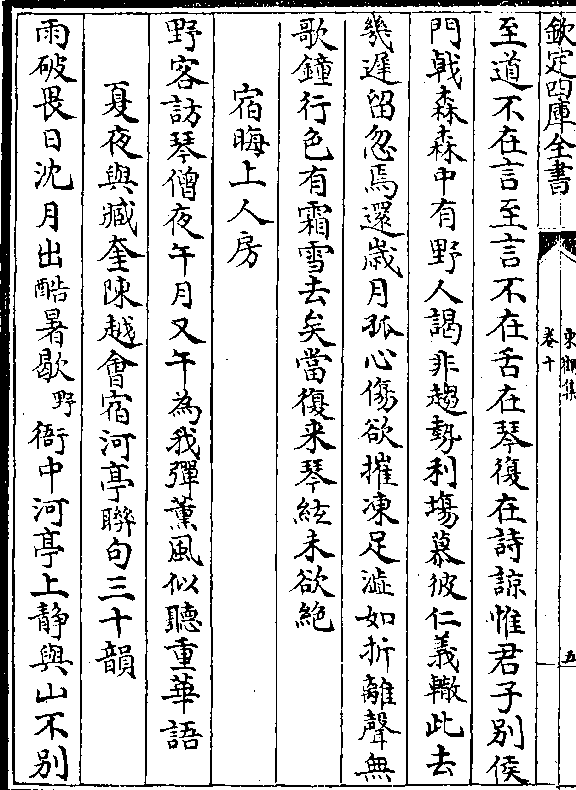 欽定四庫全書
東觀集
卷十
五
至道不在言至言不在舌在琴復在詩諒惟君子別侯
門戟森森中有野人謁非趨勢利場慕彼仁義轍此去
幾遲留忽焉還歲月孤心傷欲摧凍足澁如折離聲無
歌鐘行色有霜雪去矣當復来琴絃未欲絶
宿晦上人房
野客訪琴僧夜午月又午為我彈薰風似聽重華語
夏夜與臧奎陳越會宿河亭聯句三十韻
雨破畏日沈月出酷暑歇野衙中河亭上静與山不別